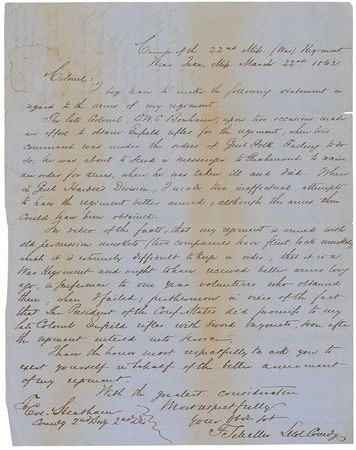 Camp of the 22nd Miss. (War) Regiment
Near Iuka, Miss. March 22nd 1862
Colonel:
I beg leave to make the following statement in
regard to the arms of my regiment.
The late Colonel, D. W. C. Bonham, upon two occasions made
an effort to obtain Enfield rifles for the regiment, when his
command was under the orders of Genl Polk. Failing to do
so, he was about to send a messenger to Richmond to
an order for arms, when he was taken ill and died. When
in Genl Hardee's Division, I made two ineffectual attempts
to have the regiment better armed, although the arms then
could have been obtained.
In view of the facts, that my regiment is armed with
old percussion muskets (two companies have flint lock muskets)
which it is extremely difficult to keep in order, that it is a
War Regiment and ought to have received better arms long
ago, in preference to one year volunteers who obtained
them, when I failed; furthermore in view of the fact
that the President of the Conf. States did promise to my
late Colonel Enfield rifles with sword bayonets, soon after
the regiment entered into service.
I have the honor most respectfully to ask you to
exert yourself in behalf of the better armament
of my regiment.
With the greatest consideration
To Most respectfully
Col. Statham Your Obdt Svt
Comdg 2nd Brig. 2nd Div. F Schaller Lt Col Comdg